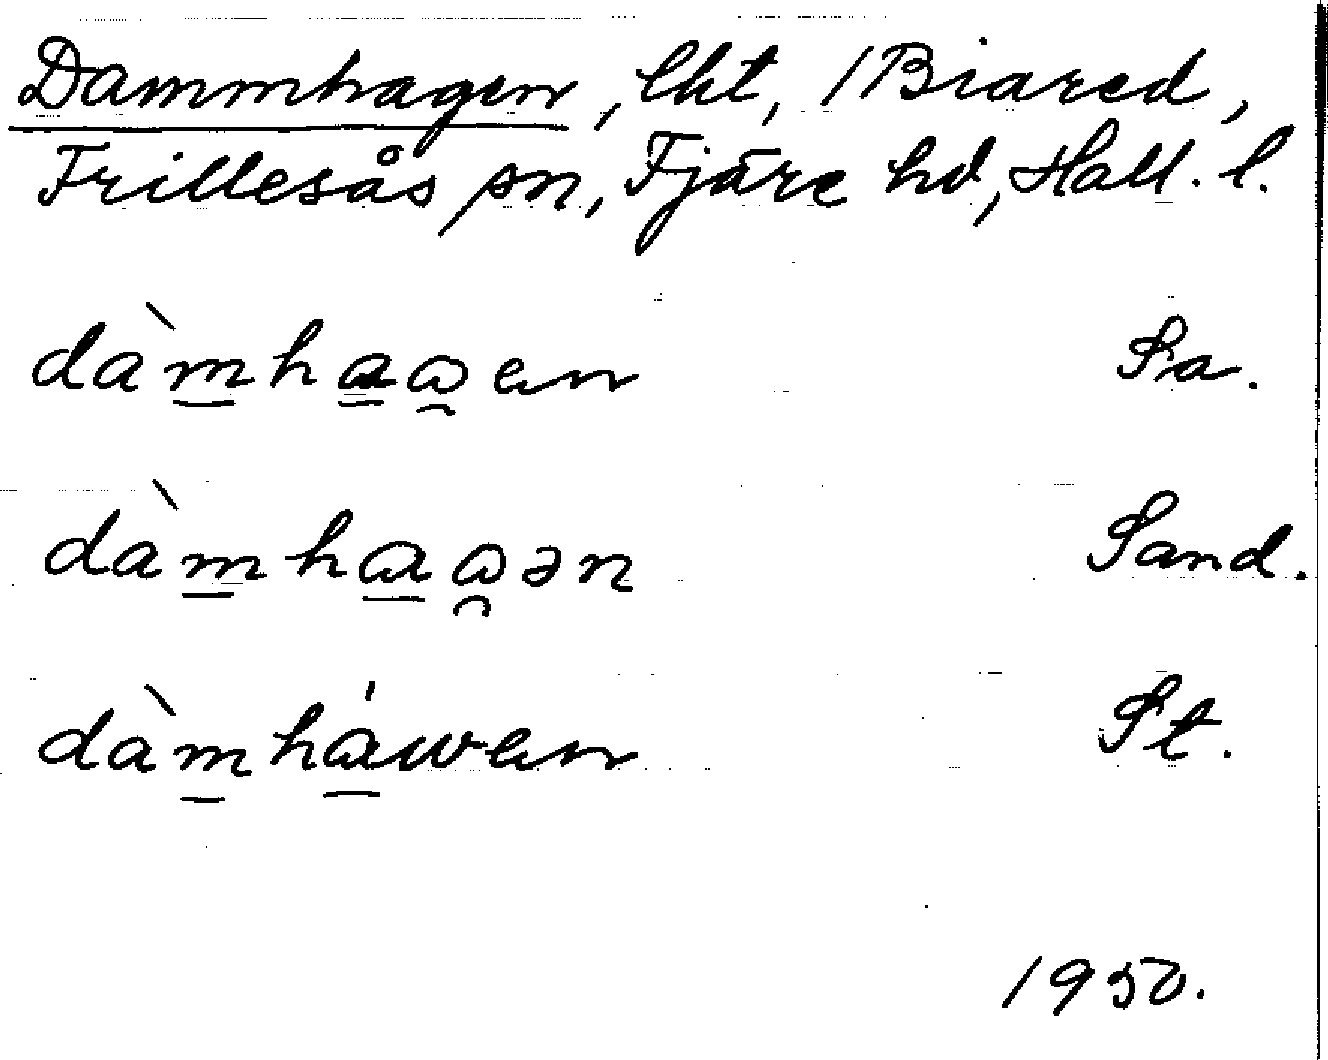 Dammhagen, lht, 1 Biared,
Frillesås sn, Fjäre hd, Hall. l.
dàmhaaen Sa.
dàmhaaən Sand.
dàmháwen St.
1950.